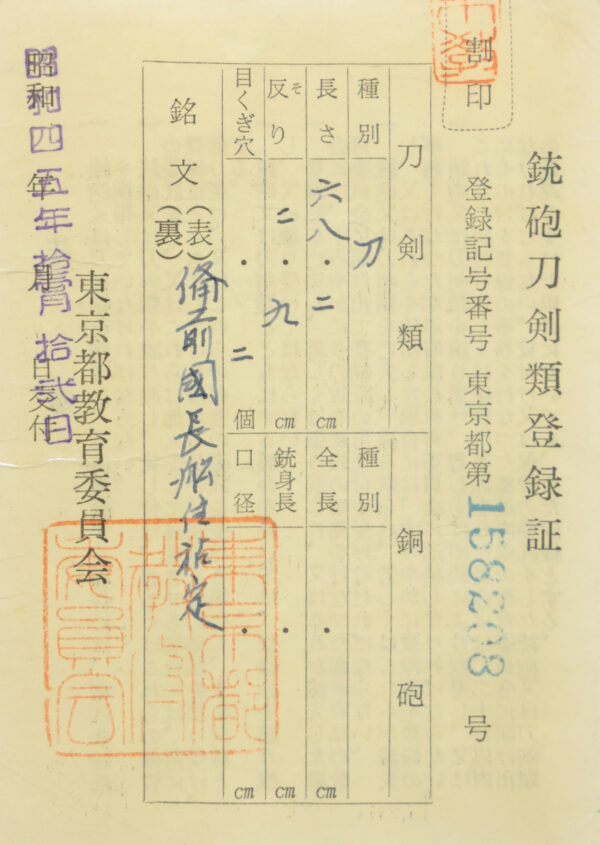 銃砲刀剣類登録証
割印
登録記号番号 東京都第158298号
刀剣類
銅砲
種別 刀
種別
長さ 六八・二 cm
全長 ・ cm
反り そ 二・九 cm
銃身長 ・ cm
目くぎ穴 ・ 二 個
口径 ・ cm
銘文 (表) 備前國長船住祐定
(裏)
東京都教育委員会
昭和 年 月 日交付
昭和四五年
東京都教育委員会